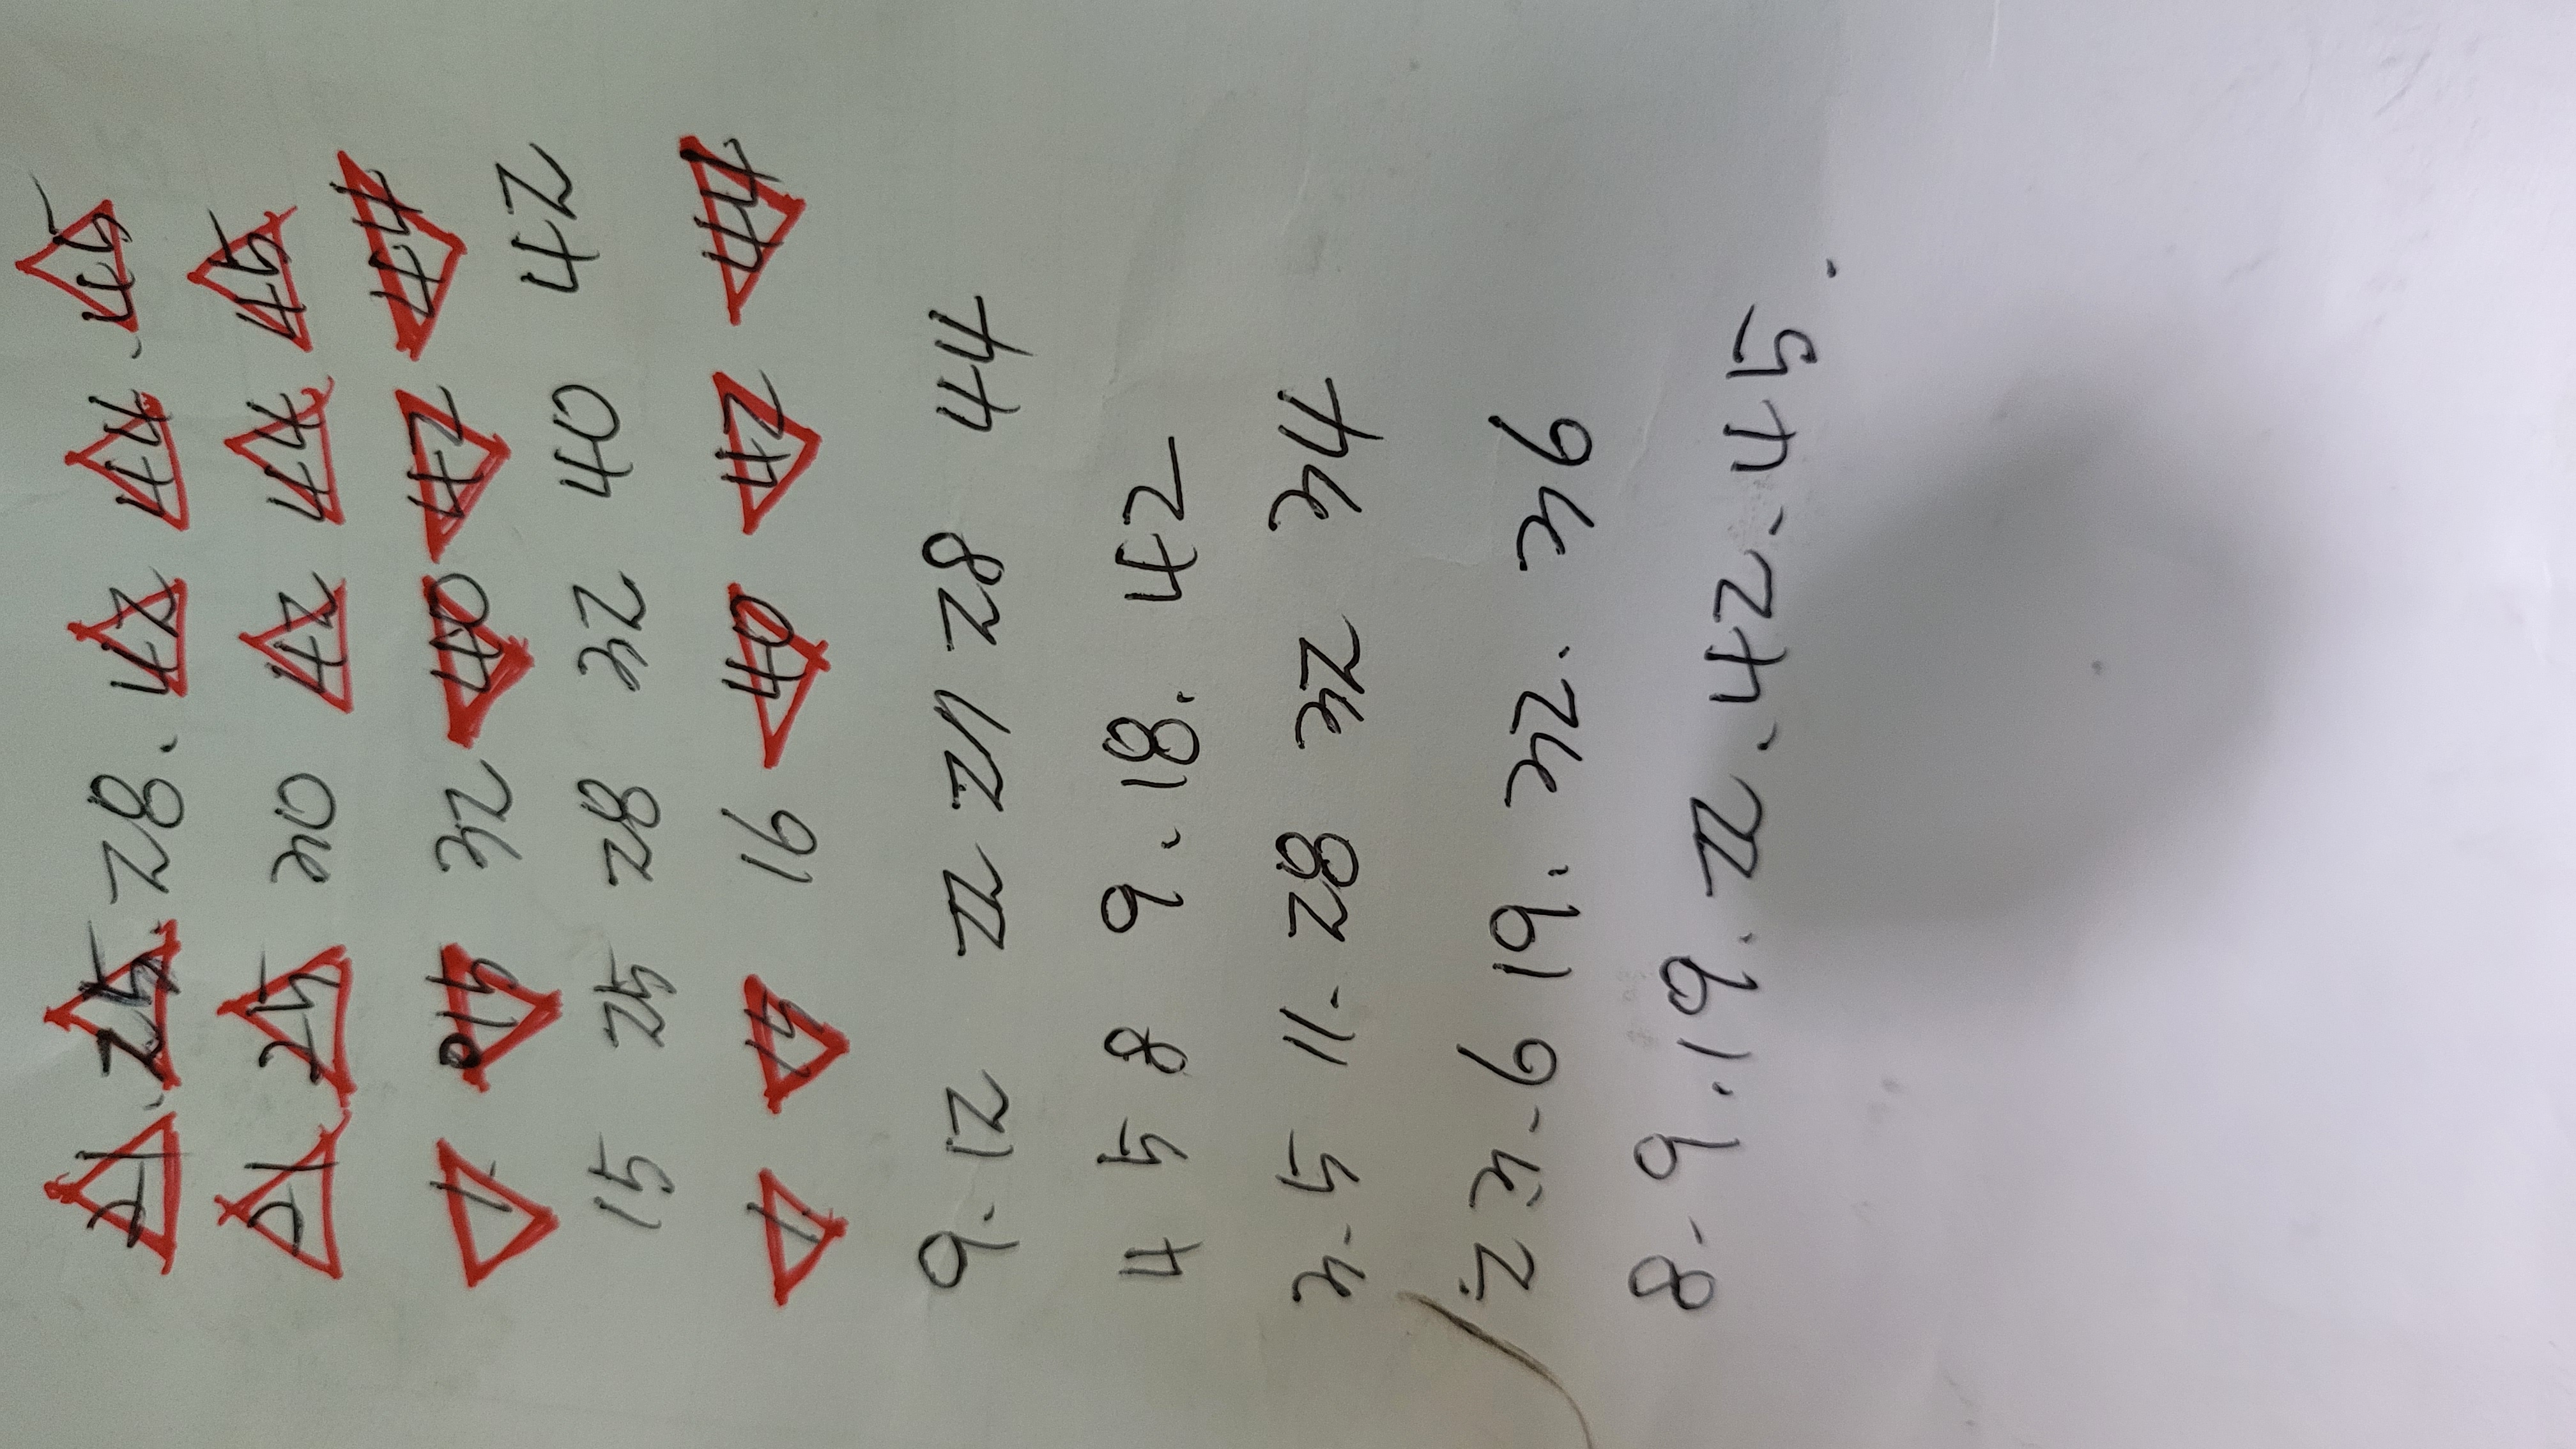 21. 25 28. 42 44. 45
21 25 30 42 44 45
1 15 32 40 42 44
15 25 28 32 40 42
1 15 16 40 42 44
9. 12 22 27 28 44
4 5 8 9. 18. 42
3. 5 11. 28 32 34
2 3. 6 19. 32. 36
8. 9. 19. 22. 42. 45.